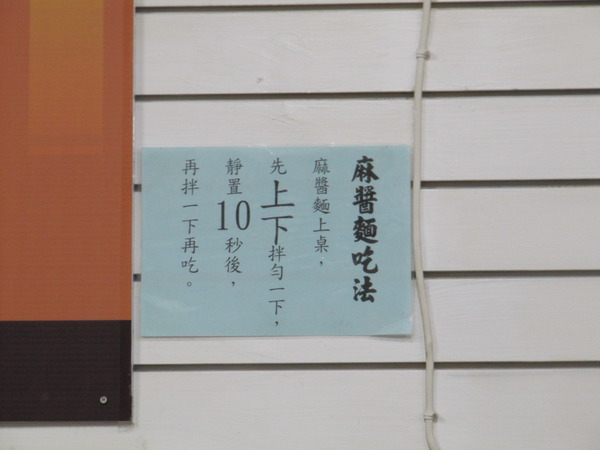 麻醬麵吃法
麻醬麵上桌，
先上下拌勻一下，
靜置10秒後，
再拌一下再吃。